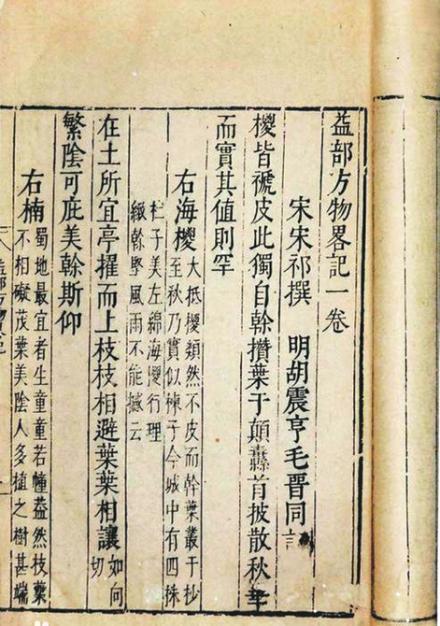 益部方物畧記一卷
宋宋祁撰 明胡震亨毛晋同
椶皆褫皮此獨自幹攢葉于顛纛首披散秋華
而實其值則罕
右海椶
大抵椶類然不皮而幹葉叢于杪
至秋乃實似楝子今城中有四株
杜子美左綿海椶行理
緻幹堅風雨不能撼云
在土所宜亭擢而上枝枝相避葉葉相讓如向切
繁陰可庇美幹斯仰
右楠
蜀地最宜者生童童若幢蓋然枝葉
不相礙茂葉美陰人多植之樹甚端